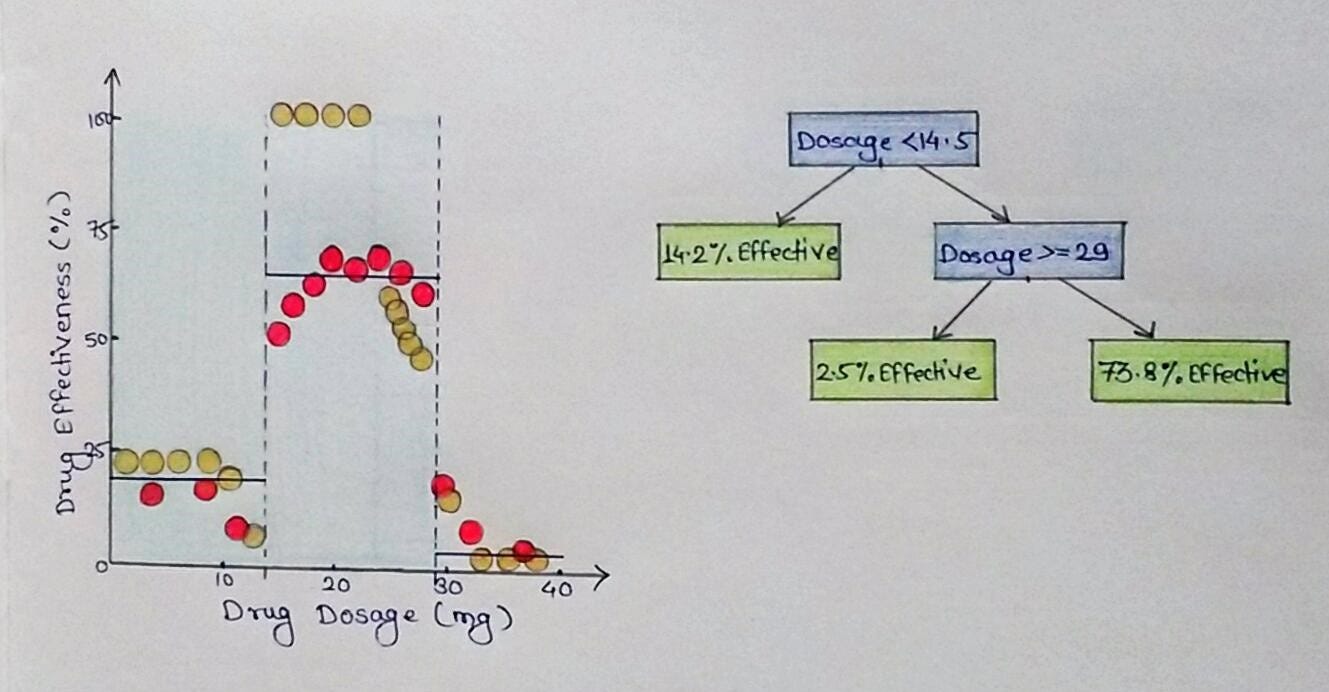 Drug Effectiveness (%)
100
75
50
25
0
10
20
30
40
Drug Dosage (mg)
Dosage <14.5
14.2% Effective
Dosage >= 29
2.5% Effective
73.8% Effective